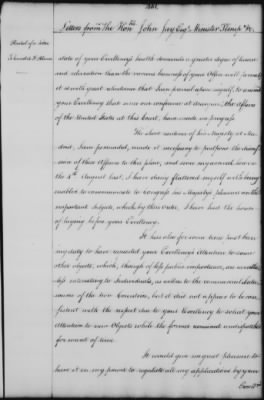 Letters from The Hon.ble John Jay Esqr. Minister Plenip. &c.
state of your Excellency's health demands a greater degree of leisure
and relaxation than the various business of your Office will permit,
it is with great reluctance that I can persuade myself to remind
your Excellency that since our conference at the affairs
of the United States at this court, have made no progress
The short residence of his Majesty at Ma-
drid, I am persuaded, made it necessary to postpone the
of these Affairs to this place, and since my arrival here on
the 4th August last, I have daily flattered myself with being
enabled to communicate to Congress his Majesty's pleasure on the
important subjects, which, by their order, I have had the honor
of laying before your Excellency.
It has also for some time past been
my duty to have requested your Excellency's Attention to some
other objects, which, though of less public importance, are
less interesting to Individuals, as well as to the commercial
of the two Countries, but it did not appear to be con-
sistent with the respect due to your Excellency to solicit your
Attention to new Objects while the former remained
for want of time.
It would give me great pleasure to
have it in my power to regulate all my applications by your
Conve